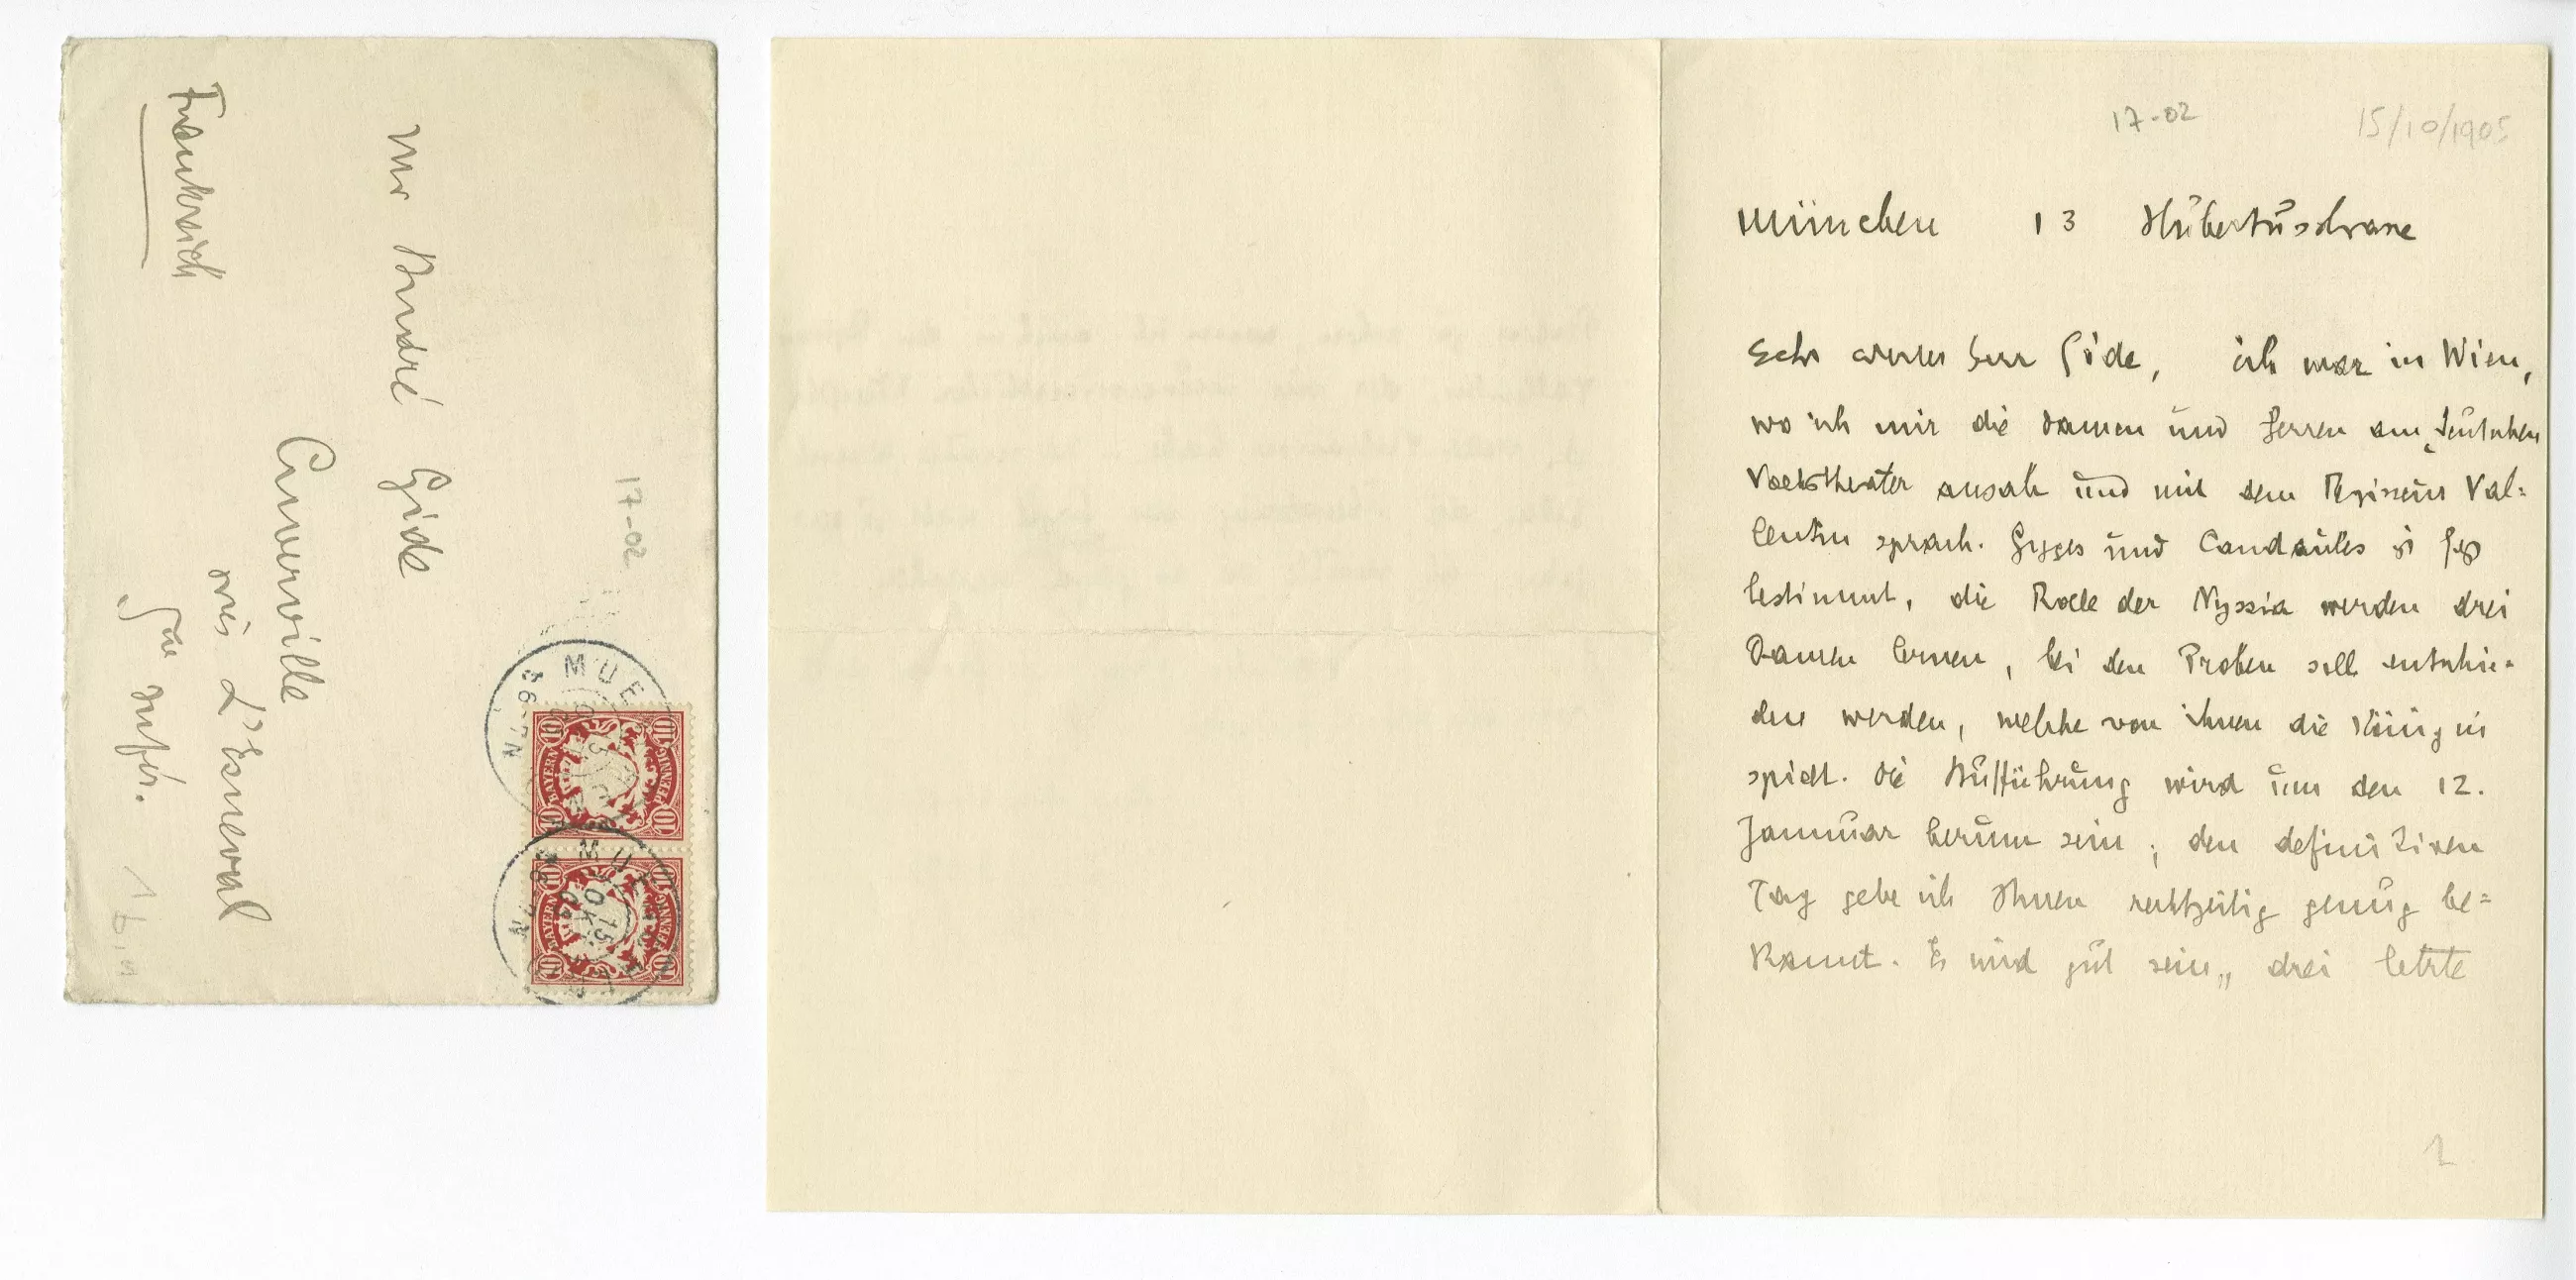 Frankreich
Mr André Gide
Cuverville
près L'Esneval
Sne Infér.
17-02
MUE
10 BAYERN 10 PFENNIG 10
10 BAYERN 10 PFENNIG 10
15. OKT
17-02
15/10/1905
München 13 Hubertusstrasse
Sehr werter Herr Gide, ich war in Wien,
wo ich mir die Damen und Herren am Deutschen
Volkstheater ansah und mit dem Regisseur Val=
lentin sprach. Gyges und Candaules ist
bestimmt, die Rolle der Nyssia werden drei
Damen lernen, bei den Proben soll entschie-
den werden, welche von ihnen die Königin
spielt. Die Aufführung wird um den 12.
Januar herum sein; den definitiven
Tag gebe ich Ihnen rechtzeitig genug be=
kannt. Es wird gut sein, drei letzte
1